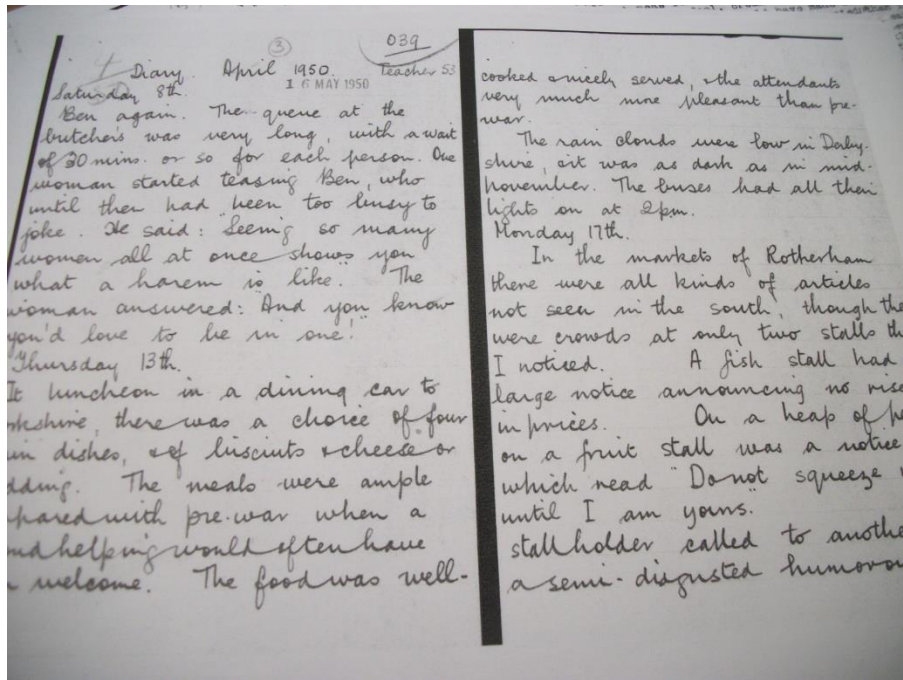 3
039
Diary. April 1950. Teacher 53
16 MAY 1950
Saturday 8th.
Ben again. The queue at the
butcher's was very long, with a wait
of 30 mins. or so for each person. One
woman started teasing Ben, who
until then had been too busy to
joke. He said: "Seeing so many
women all at once shows you
what a harem is like." The
woman answered: "And you know
you'd love to be in one!"
Thursday 13th.
At luncheon in a dining car to
rkshire, there was a choice of four
in dishes, & of biscuits & cheese or
dding. The meals were ample
pared with pre-war when a
nd helping would often have
n welcome. The food was well-
cooked & nicely served, & the attendants
very much more pleasant than pre-
war.
The rain clouds were low in Derby-
shire, & it was as dark as in mid-
november. The buses had all their
lights on at 2pm.
Monday 17th.
In the markets of Rotherham
there were all kinds of articles
not seen in the south, though the
were crowds at only two stalls th
I noticed. A fish stall had
large notice announcing no rise
in prices. On a heap of pe
on a fruit stall was a notice
which read "Do not squeeze
until I am yours."
stallholder called to anothe
a semi-disgusted humorou